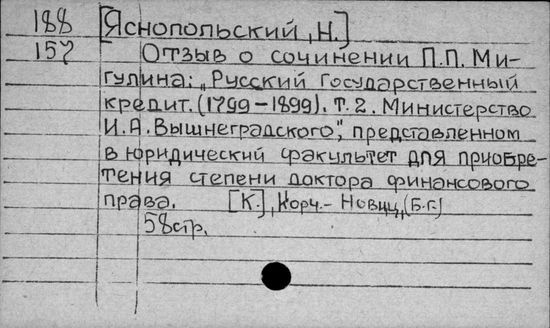 188 [Яснопольский, Н.]
157 Отзыв о сочинении П.П. Ми-
гулина: „Русский государственный
кредит. (1799-1899). Т. 2. Министерство
И.А. Вышнеградского", представленном
в юридический факультет для приобре-
тения степени доктора финансового
права. [К.], Корч.-Новиц, (Б.г.)
58 стр.